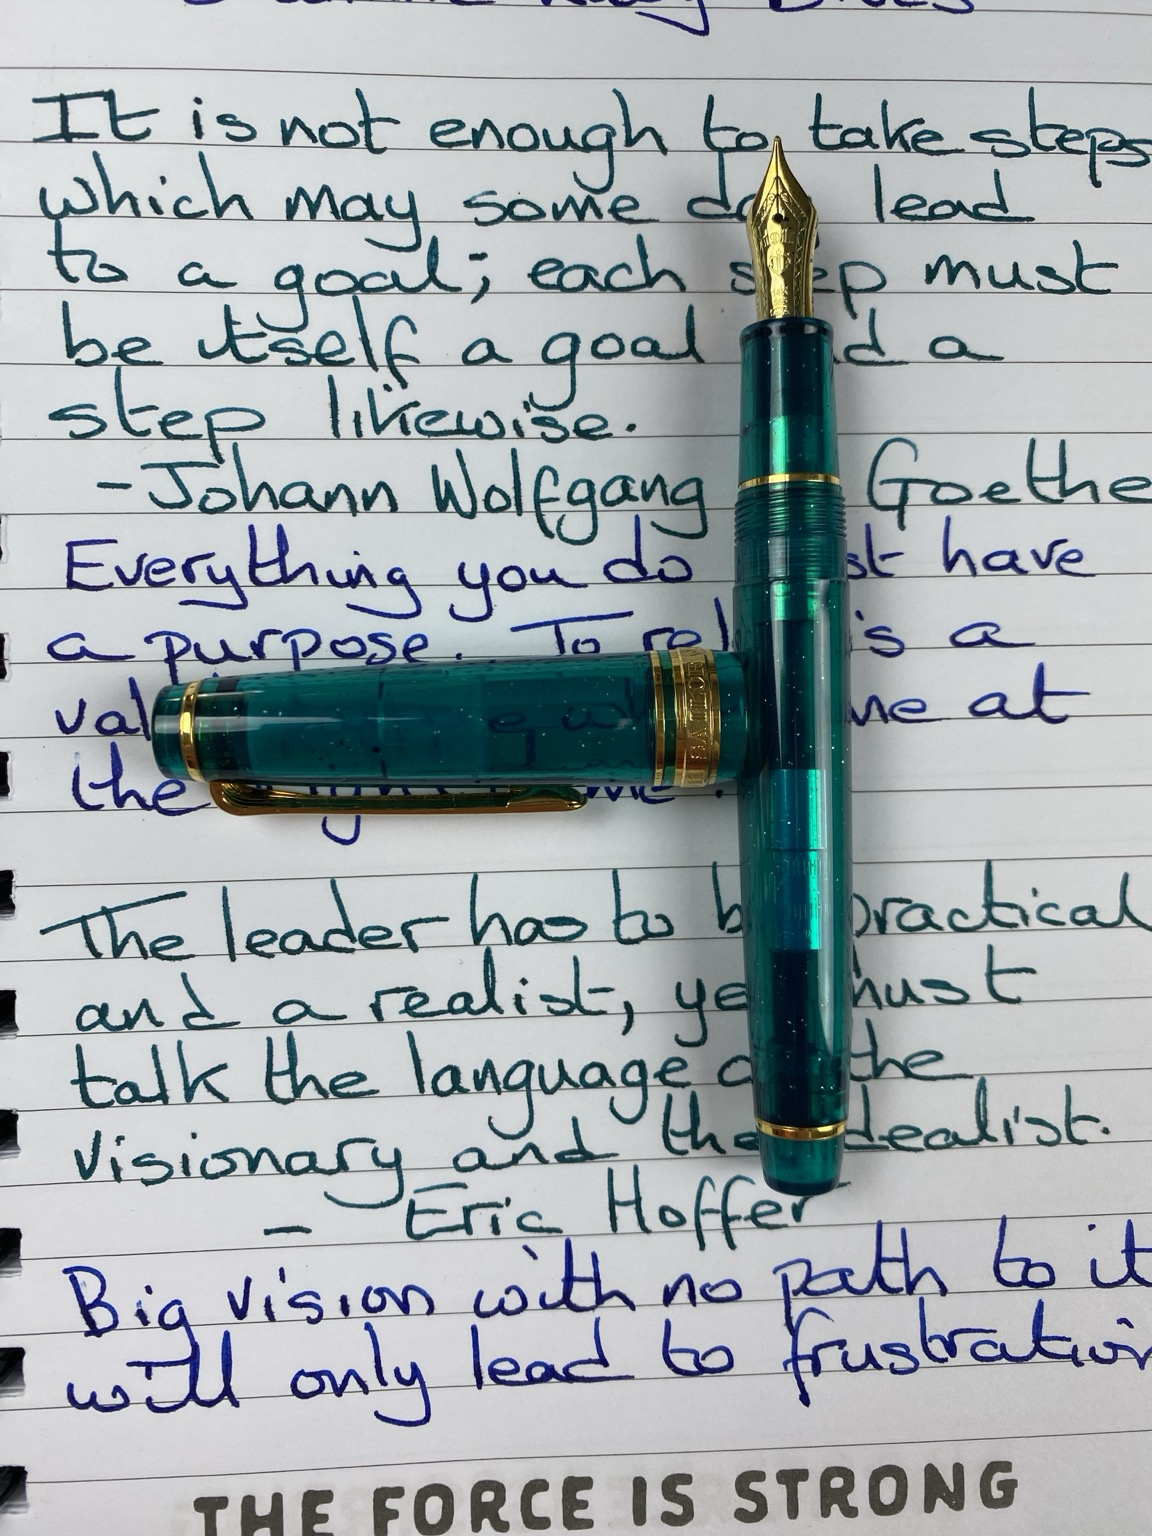 It is not enough to take steps
which may some day lead
to a goal; each step must
be itself a goal and a
step likewise.
-Johann Wolfgang Goethe
Everything you do must have
a purpose. To relax is a
at
the
The leader has to be practical
and a realist, yet must
talk the language of the
visionary and the idealist.
- Eric Hoffer
Big vision with no path to it
will only lead to frustration
THE FORCE IS STRONG